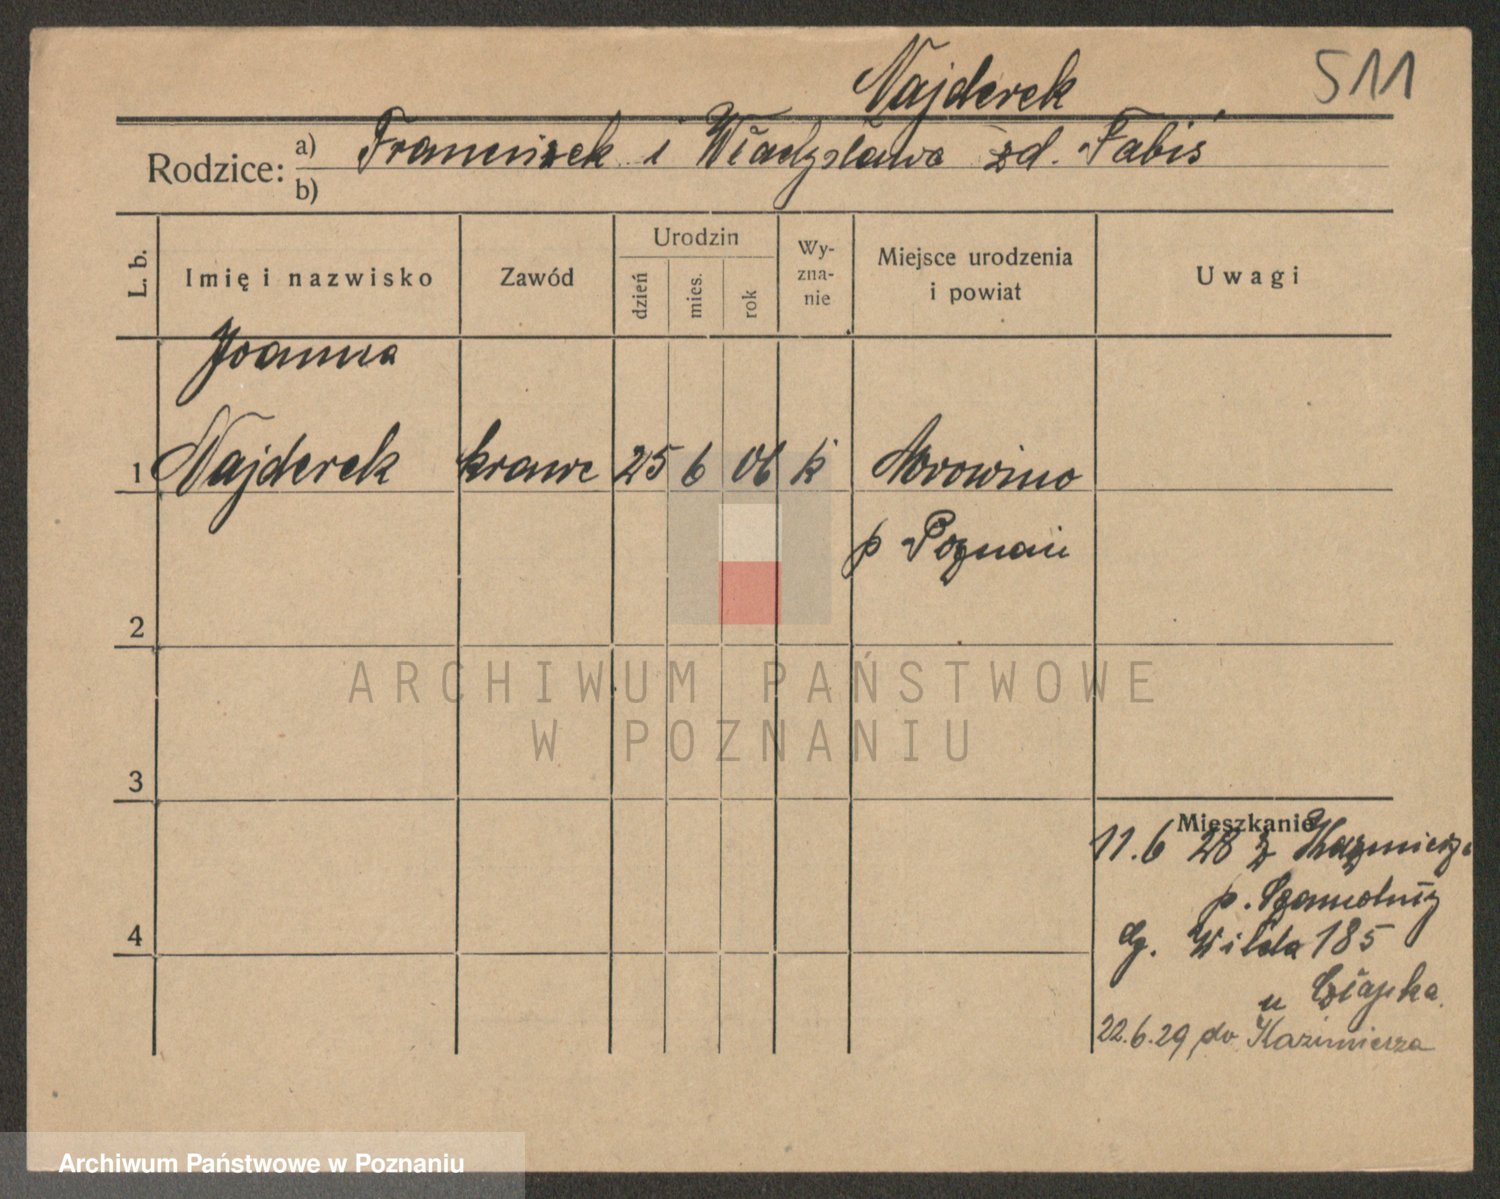 Najderek
511
Rodzice: a) Franciszek i Władysława zd. Fabiś
b)
L. b. Imię i nazwisko Zawód Urodzin dzień mies. rok Wy-zna-nie Miejsce urodzenia i powiat Uwagi
Joanna
1 Najderek krawc 25 6 06 k
p Poznań
2
ARCHIWUM PAŃSTWOWE
W POZNANIU
3
Mieszkanie
11.6 28 z Kaźmierza
p. Szamotuły
G. Wilda 185
u Człapka
4
22.6.29 do Kazimierza
Archiwum Państwowe w Poznaniu